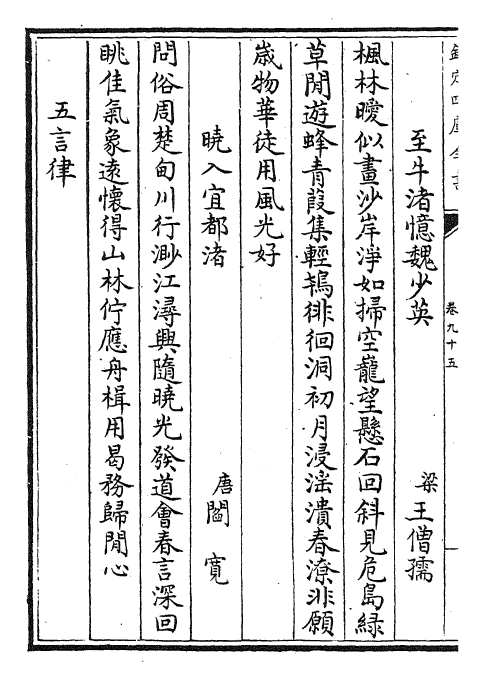 欽定四庫全書
卷九十五
至牛渚憶魏少英 梁王僧孺
楓林曖似畫沙岸淨如掃空籠望懸石回斜見危島緑
草閒遊蜂青葭集輕鴇徘徊洞初月浸淫潰春潦非願
歳物華徒用風光好
曉入宜都渚 唐閻寛
問俗周楚甸川行渺江潯興隨曉光發道會春言深回
眺佳氣象遠懷得山林佇應舟楫用曷務歸閒心
五言律